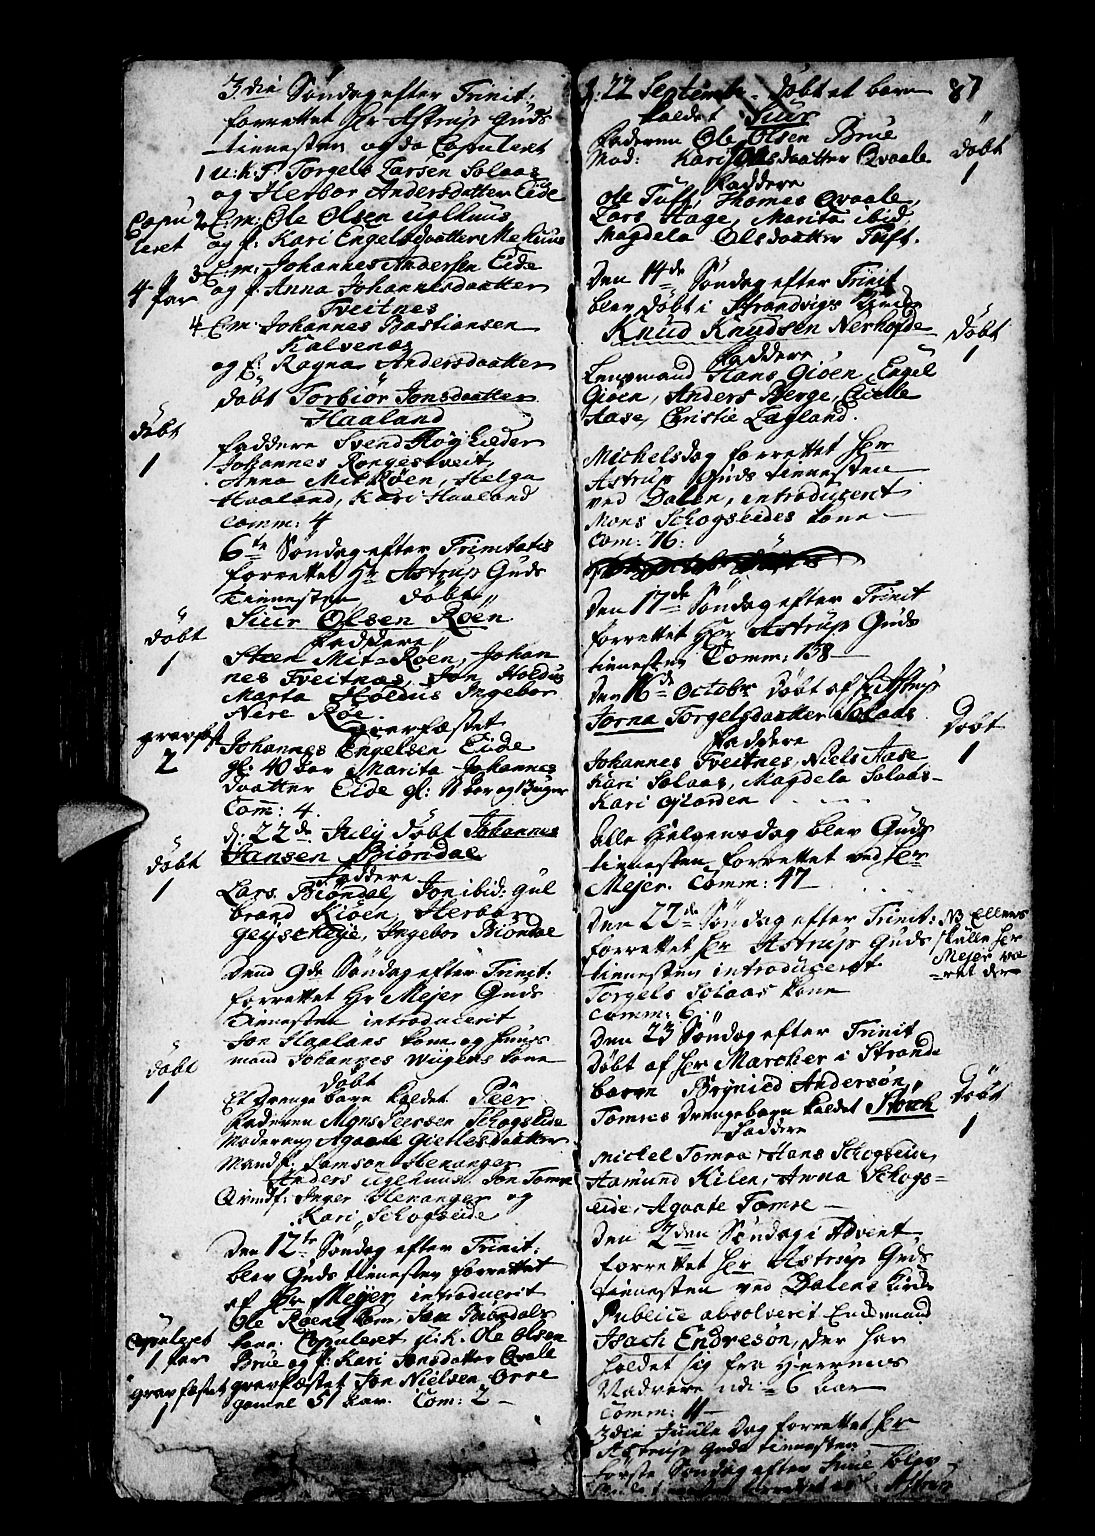 3die Søndag efter Trinit:
forrettet Hr Astrup Guds
tiennesten og da Copuleret
1 u: k: T: Torgels Larsen Solaas
og Herbor Andersdaatter Eide
Copu 2 E: m: Ole Olsen Uglhuus
leret og f: Kari Engelsdaatter Mehuus
3 E: m: Johannes Andersen Eide
4 par og f: Anna Johannesdaatter
Tveitnes
4 E: m: Johannes Bastiansen
Kalvenæs
og f: Ragna Andersdaatter
døbt Torbiør Jonsdaatter
Haaland
døbt
1
faddere Svend Høg Lieder
Johannes Rongestveit,
Anna Mit Røen, Helga
Haaland, Kari Haaland
Comm: 4
6te Søndag efter Trinitatis
forrettet Hr Astrup Guds
tiennesten døbt
Siur Olsen Røen
døbt
1
faddere
Steen Mit-Røen, Johan
nes Tveitnæs, Jon Holdus
Marta Holdus Ingebor
Nere Røe.
gravfæst
2
gravfæstet
Johannes Engelsen Eide
gl: 40 Aar Marita Johannes
daatter Eide gl: 11 Aar og Uger
Com: 4.
d: 22de July døbt Johannes
Jansen Biøndal
døbt
1
faddere
Lars Biøndal, Jon ibid: gul
brand Kiøen, Herbor
Geijsekleje, Ingebor Biøndal
Dend 9de Søndag efter Trinit:
forrettet Hr Mejer Guds
tiennesten introducerit
Jon Haalans kone og huus
mand Johannes Wiigens kone
døbt
døbt
1
Et drenge barn kaldet Péer
faderen Mons Persen Schogseide
Moderen Agaate Gietlesdaatter
Mandf: Samson Henanger
Anders Uglhuus Jon Tomre
Qvindf: Inger Henanger og
Kari Schogseide
Den 12te Søndag efter Trinit:
blev Guds tiennesten forrettet
af Hr Mejer introducerit
Ole Røens kone, Jan Biøndals
kone. Copuleret u: k: Ole Olsen
Brue og f: Kari Jonsdatter Qvale
Copuleret
1 par
gravfæstet
1
gravfæstet Jon Nielsen Orre
gamel 51 Aar. Com: 2 -
87
d: 22 Septembr. døbt et barn
kaldet Siur
døbt
1
faderen Ole Olsen Brue
Mod: Kari Olsdaatter Qvaale
faddere
Ole Tuft, Thomas Qvaale,
Lars Hage, Marita ibid,
Magdela Olsdaatter Tuft.
Den 14de Søndag efter Trinit
blev døbt i Strandvigs Kirke
Knud Knudsen Nerhofde
døbt
1
faddere
Lensmand Hans Gioen, Engel
Gioen, Anders Berge, Cicelle
Aase, Christie Lagland.
Michelsdag forrettet Hr
Astrup Guds tiennesten
ved Dalen, introducerit
Mons Schogseides kone -
Com: 76:
Den 17de Søndag efter Trinit
forrettet Hr Astrup Guds
tiennesten Comm: 138 -
Den 16de Octobr døbt af Hr Astrup
Jorna Torgelsdaatter Solaas
døbt
1
faddere
Johannes Tveitnes, Niels Aase
Kari Solaas, Magdela Solaas-
Kari Giorden
Alle Helgensdag blev Guds
tiennesten forrettet ved Hr
Mejer. Comm: 47
Den 22de Søndag efter Trinit:
forrettet Hr Astrup Guds
tiennesten introducerit
Torgels Solaas kone
Comm: 6.
NB Ellers
skulle Hr
Mejer væ
-ret der
Den 23 Søndag efter Trinit
døbt af Hr Marcher i Strande
barn Brynild Andersøn
Tomres drengebarn kaldet Storch
døbt
1
faddere
Michel Tomra, Hans Schogseide,
Hamund Kilen, Anna Schogs=
eide, Agaate Tomre -
Den 2den Søndag i Advent
forrettet Hr Astrup Guds
tiennesten ved Dalens Kirke
Publice absolverit Enckemand
Isach Endresøn, der har
holdet sig fra Herrens
Nadvere udi = 6 Aar
Comm: 4 -
3die Juule Dag forrettet Hr
Astrup Guds tiennesten -
første Søndag efter Juul blev
Guds tiennesten forrettet af Hr Astrup